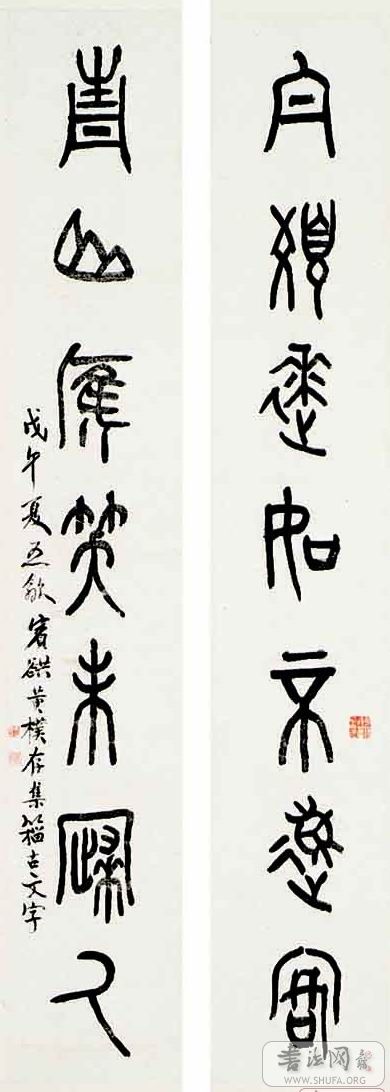 白髮來如不速客
青山應笑未歸人
戊午夏五歙賓谼黃樸存集籀古文字
书法网
WWW.SHUFA.ORG